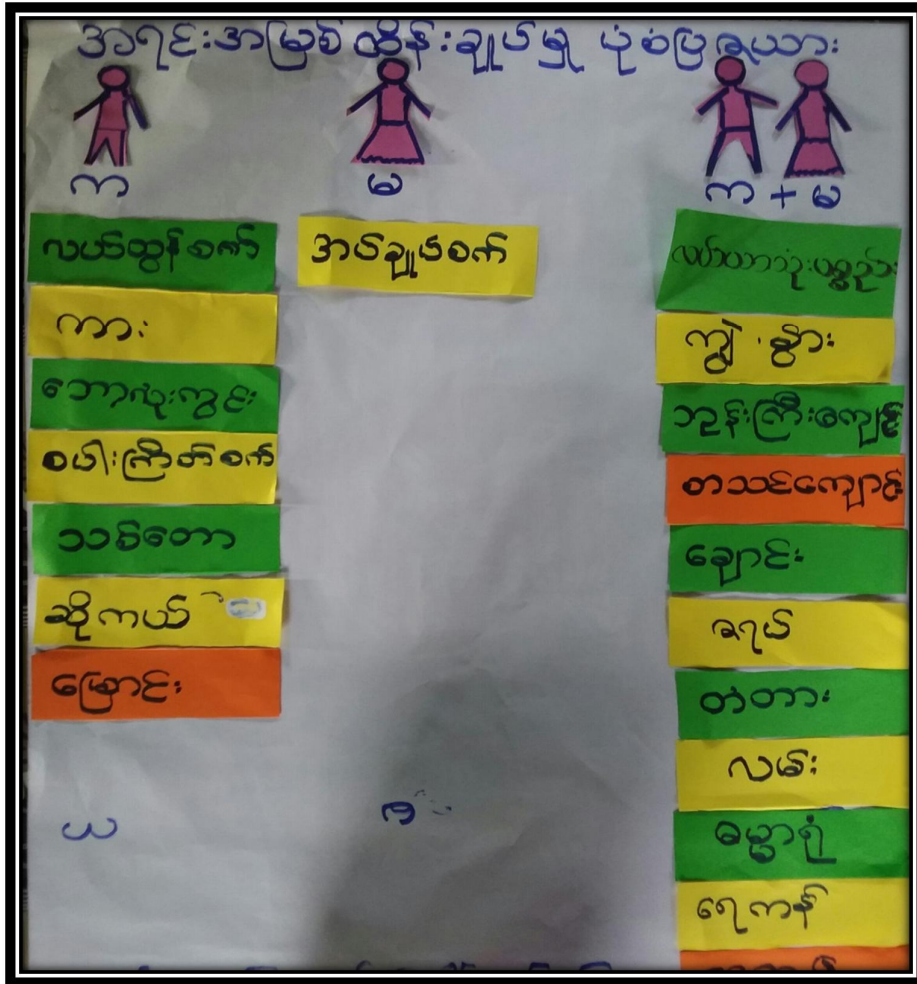 အရင်းအမြစ်ထိန်းချုပ်မှု ပုံစံပြဇယား
က
မ
က + မ
လယ်ထွန်စက်
ကား
ဘောလုံးကွင်း
စပါးကြိတ်စက်
သစ်တော
ဆိုကယ်
မြောင်း
အပ်ချုပ်စက်
လယ်ယာသုံးပစ္စည်း
ကျွဲ၊ နွား
ဘုန်းကြီးကျောင်း
စာသင်ကျောင်း
ချောင်း
ဇရပ်
တံတား
လမ်း
ဓမ္မာရုံ
ရေကန်
ယ